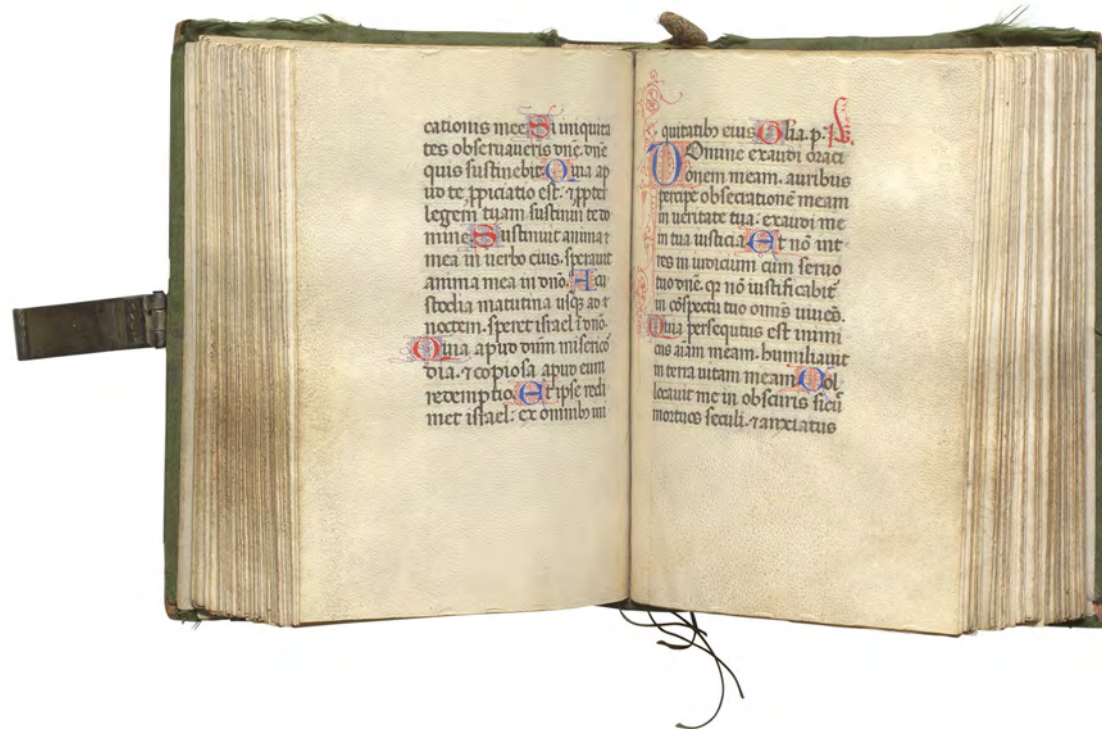 cationis mee. Si iniquita
tes obseruaueris dñe. dñe
quis sustinebit. Quia ap
ud te ꝓpiciatio est. ⁊ ꝓpter
legem tuam sustinui te do
mine. Sustinuit anima ⁊
mea in uerbo eius. sperauit
anima mea in dño. A cu
stodia matutina usqꝫ ad ⁊
noctem. speret israel ĩ dño.
Quia apud dñm misericõ
dia. ⁊ copiosa apud eum
redemptio. Et ipse redi
met israel: ex omnibꝫ ini
quitatibꝫ eius. Glia. p.
Domine exaudi oraci
onem meam. auribus
percipe obsecrationẽ meam
in ueritate tua: exaudi me
in tua iusticia. Et nõ int
res in iudicium cum seruo
tuo dñe. qꝛ nõ iustificabit̃
in cõspectu tuo omĩs uiuẽs.
Quia persequtus est inimi
cus aĩam meam. humiliauit
in terra uitam meam. Col
locauit me in obscuris sicũ
mortuos seculi. ⁊ anxiatus